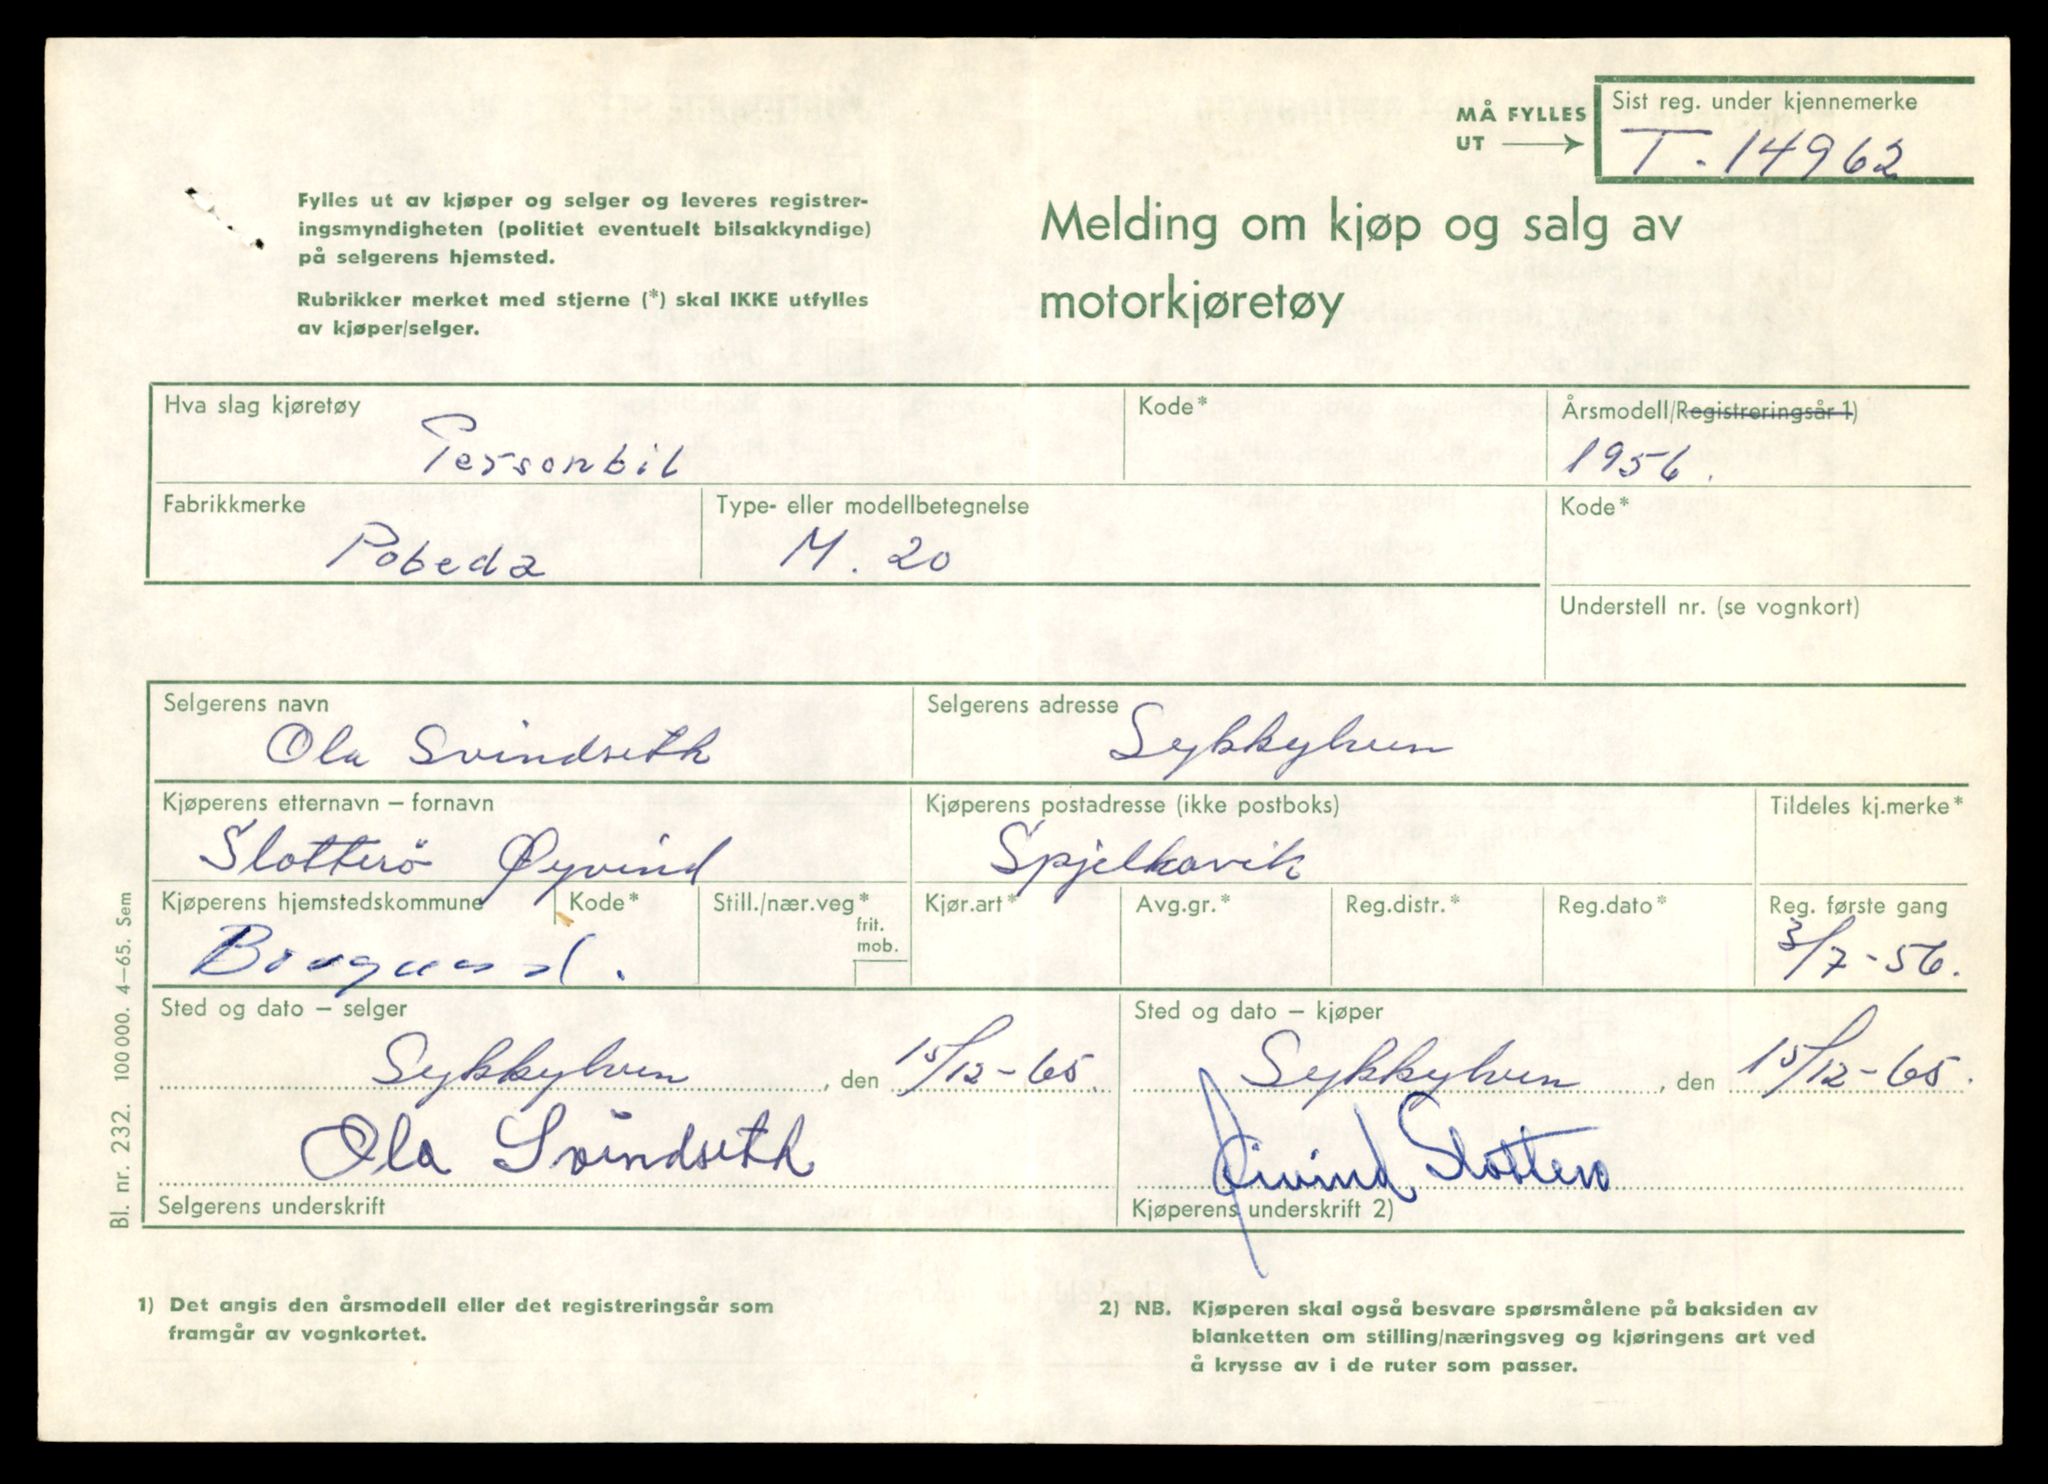 MÅ FYLLES
UT
Sist reg. under kjennemerke
T. 14962
Fylles ut av kjøper og selger og leveres registrer-
ingsmyndigheten (politiet eventuelt bilsakkyndige)
på selgerens hjemsted.
Rubrikker merket med stjerne (*) skal IKKE utfylles
av kjøper/selger.
Melding om kjøp og salg av
motorkjøretøy
Hva slag kjøretøy
Personbil
Kode*
Årsmodell/Registreringsår 1)
1956.
Fabrikkmerke
Pobeda
Type- eller modellbetegnelse
M. 20
Kode*
Understell nr. (se vognkort)
Selgerens navn
Ola Svindseth
Selgerens adresse
Sykkylven
Kjøperens etternavn – fornavn
Slotterö Øyvind
Kjøperens postadresse (ikke postboks)
Spjelkavik
Tildeles kj.merke*
Kjøperens hjemstedskommune
Borgund.
Kode*
Still./nær.veg*
frit.
mob.
Kjør.art*
Avg.gr.*
Reg.distr.*
Reg.dato*
Reg. første gang
3/7-56.
Sted og dato – selger
Sykkylven, den 15/12-65.
Ola Svindseth
Selgerens underskrift
Sted og dato – kjøper
Sykkylven, den 15/12-65.
Øivind Slotterø
Kjøperens underskrift 2)
1) Det angis den årsmodell eller det registreringsår som
framgår av vognkortet.
2) NB. Kjøperen skal også besvare spørsmålene på baksiden av
blanketten om stilling/næringsveg og kjøringens art ved
å krysse av i de ruter som passer.
Bl. nr. 232. 100 000. 4–65. Sem